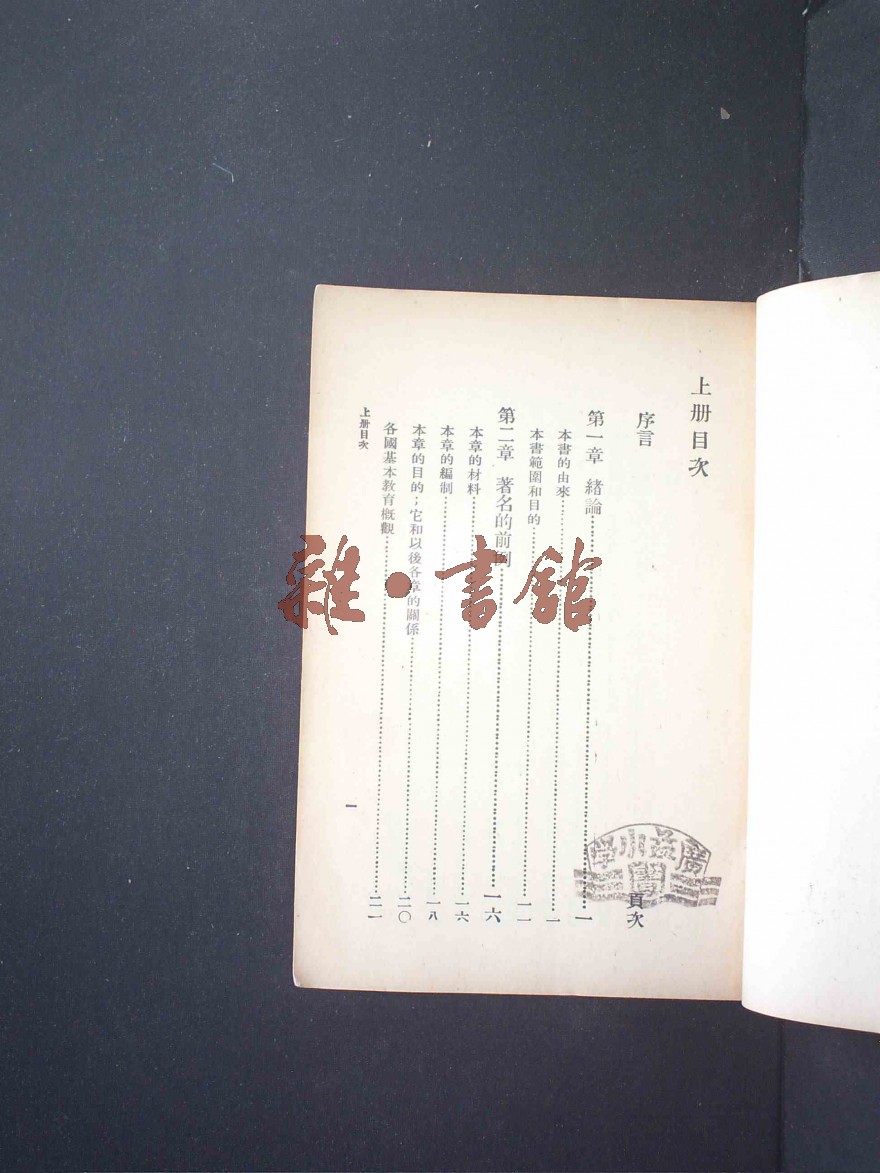 上册目次
序言
頁次
第一章 緒論……一
本書的由來……一
本書範圍和目的……一一
第二章 著名的前例……一六
本章的材料……一六
本章的編制……一八
本章的目的；它和以後各章的關係……二〇
各國基本教育概觀……二一
上册目次
一
雜·書館
廣益小學